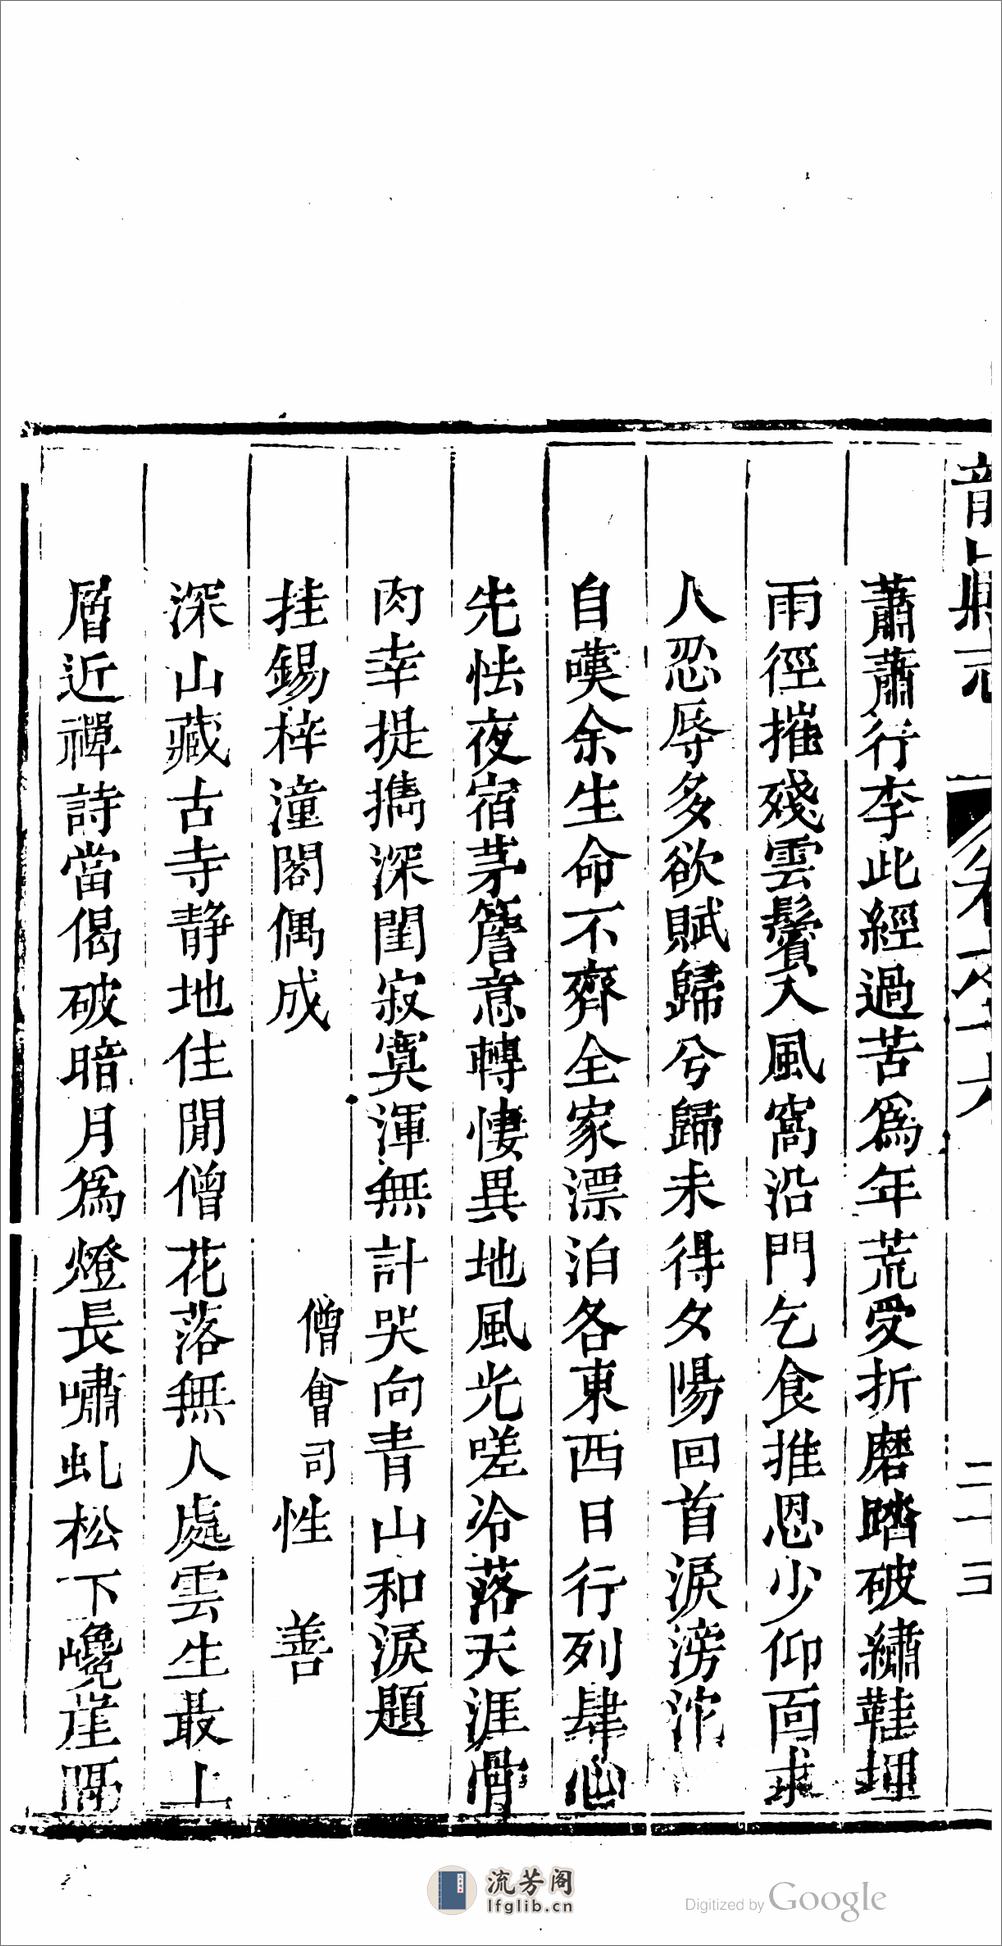 蕭蕭行李此經過苦爲年荒受折磨踏破繡鞋埋
雨徑摧殘雲鬢入風窩沿門乞食推恩少仰面求
人忍辱多欲賦歸兮歸未得夕陽回首淚滂沱
自嘆余生命不齊全家漂泊各東西日行列肆心
先怯夜宿茅簷意轉悽異地風光嗟冷落天涯骨
肉幸提攜深閨寂寞渾無計哭向青山和淚題
挂錫梓潼閣偶成 僧會司性 善
深山藏古寺靜地住閒僧花落無人處雲生最上
層近禪詩當偈破暗月爲燈長嘯虬松下巉崖隔
二十三
流芳阁
lfglib.cn
Digitized by Google